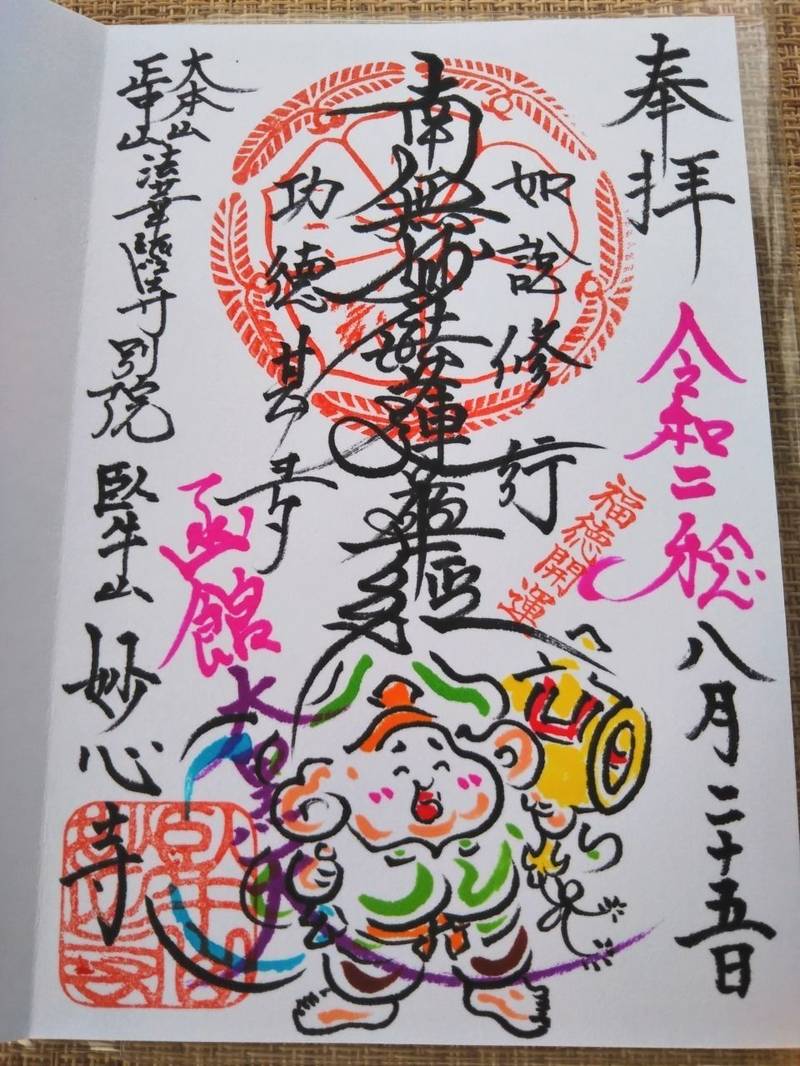 奉拝
令和二稔
八月二十五日
福徳開運
如説修行
南無妙法蓮華経
功徳甚多
函館
大黒天
大本山
正中山
法華経寺別院
臥牛山
妙心寺